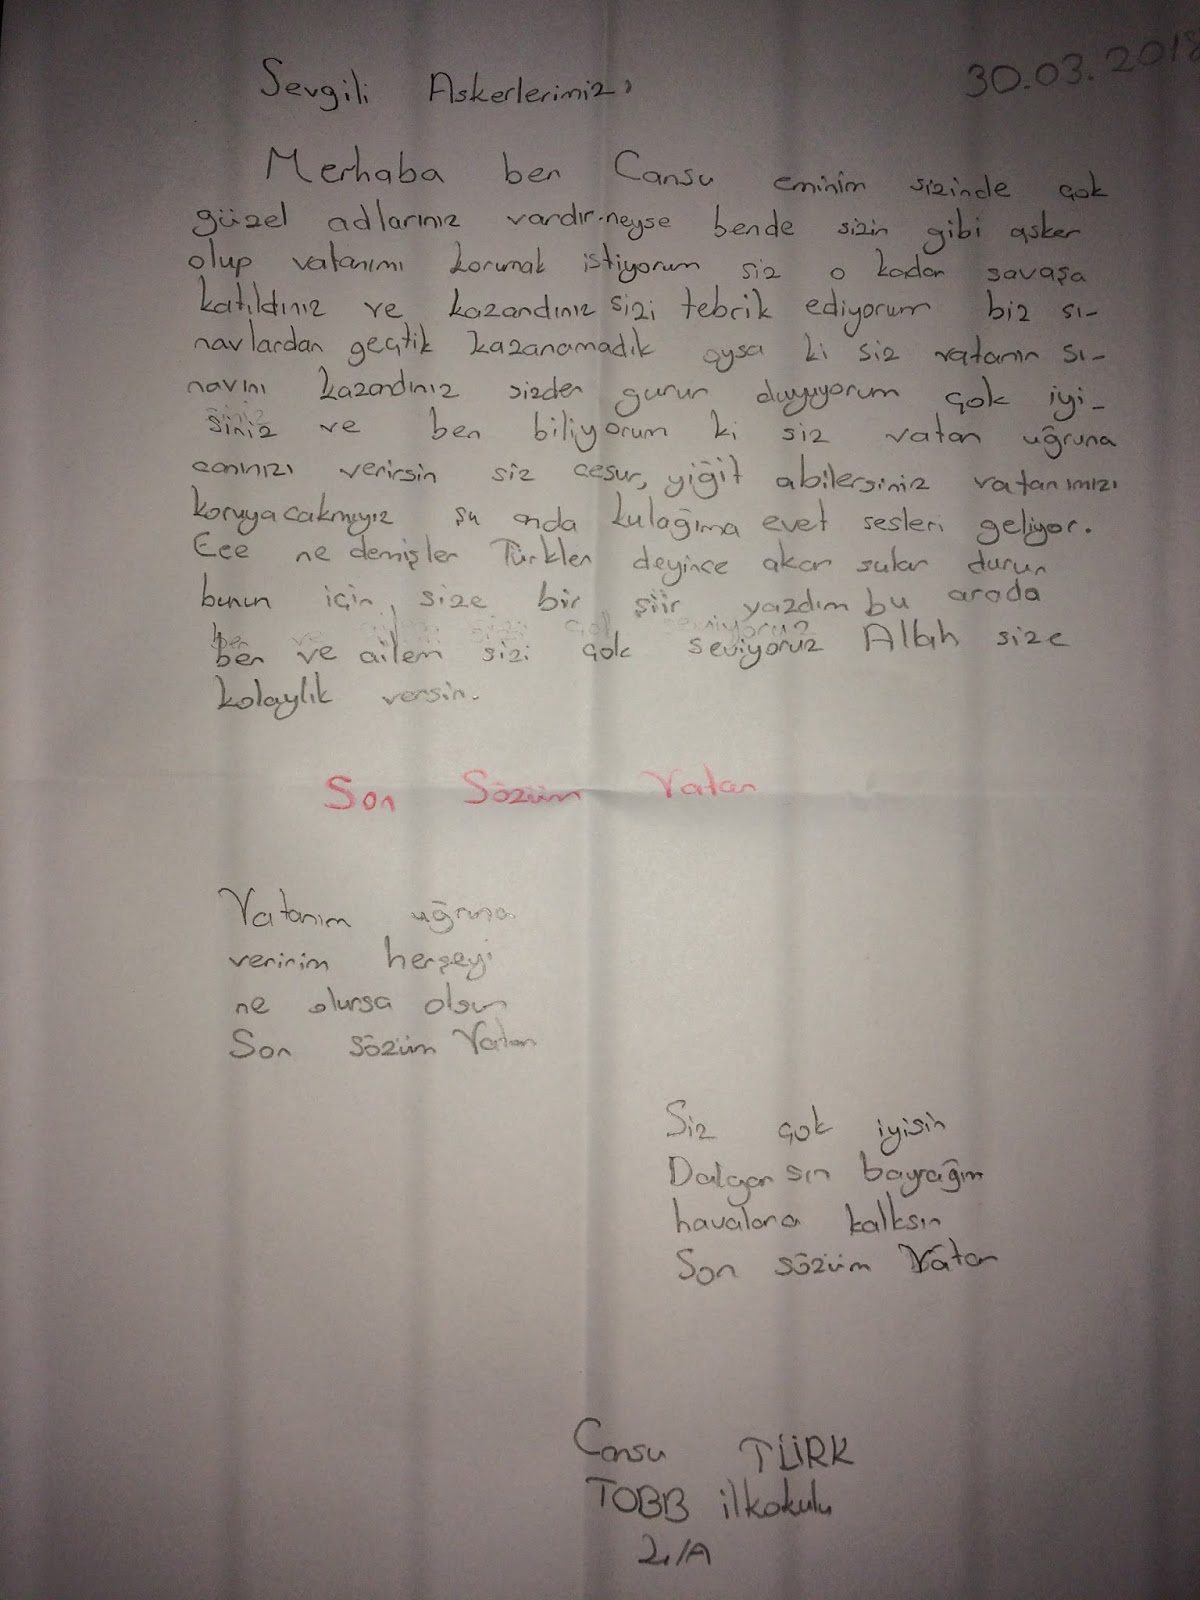 30.03.2018
Sevgili Askerlerimiz,
Merhaba ben Cansu eminim sizinde çok
güzel adlarınız vardır.neyse bende sizin gibi asker
olup vatanımı korumak istiyorum siz o kadar savaşa
katıldınız ve kazandınız sizi tebrik ediyorum biz sı-
navlardan geçtik kazanamadık oysa ki siz vatanın sı-
navını kazandınız sizden gurur duyuyorum çok iyi-
siniz ve ben biliyorum ki siz vatan uğruna
canınızı verirsin siz cesur, yiğit abilersiniz vatanımızı
koruyacakmıyız şu anda kulağıma evet sesleri geliyor.
Eee ne demişler Türkler deyince akar sular durur
bunun için size bir şiir yazdım bu arada
ben ve ailem sizi çok seviyoruz Allah size
kolaylık versin.
Son Sözüm Vatan
Vatanım uğruna
veririm herşeyi
ne olursa olsun
Son sözüm Vatan
Siz çok iyisin
Dalgansın bayrağım
havalara kalksın
Son sözüm Vatan
Cansu TÜRK
TOBB ilkokulu
2/A